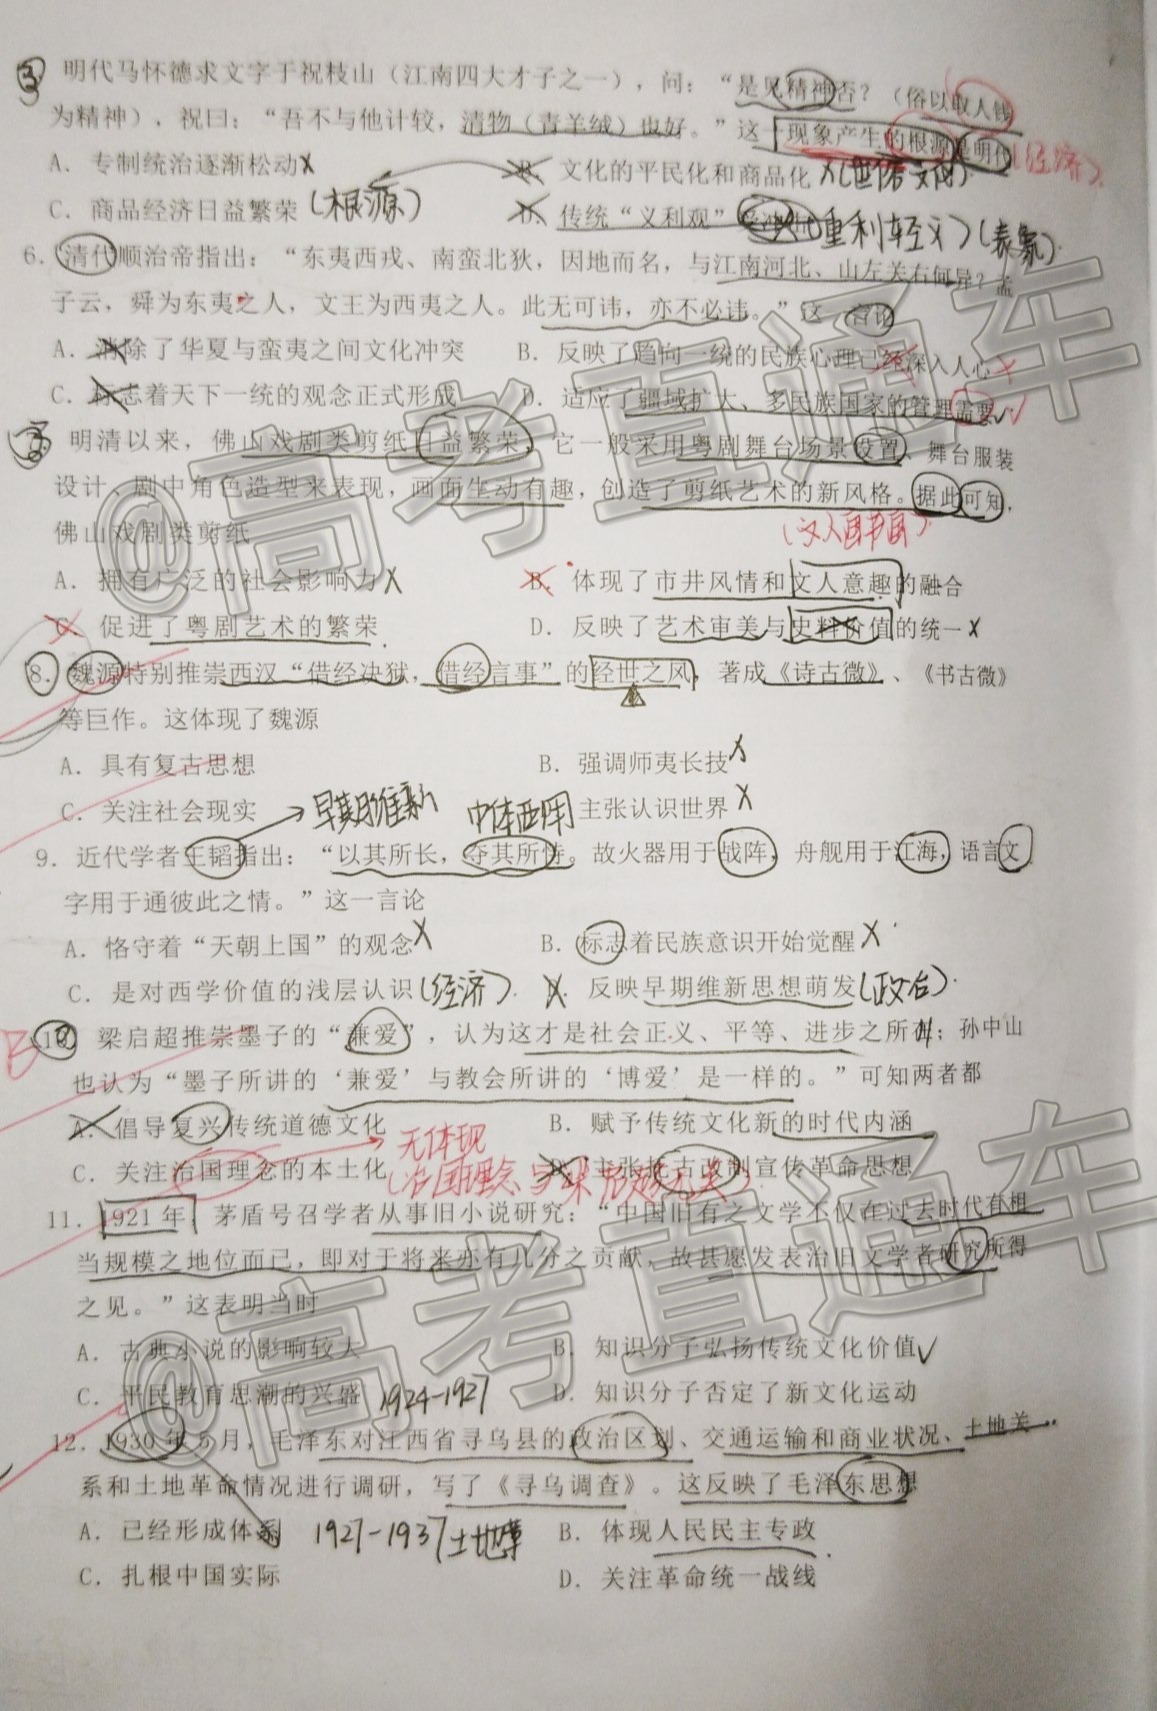 明代马怀德求文字于祝枝山（江南四大才子之一），问：“是见精神否？（俗以取人钱
为精神），祝曰：“吾不与他计较，清物（青羊绒）也好。”这一现象产生的根源是明代
(经济)
A．专制统治逐渐松动X
B．文化的平民化和商品化 X
C．商品经济日益繁荣 (根源)
D．传统“义利观” (重利轻义)(表象)
6．清代顺治帝指出：“东夷西戎、南蛮北狄，因地而名，与江南河北、山左关右何异？孟
子云，舜为东夷之人，文王为西夷之人。此无可讳，亦不必讳。”这一言论
A．消除了华夏与蛮夷之间文化冲突
B．反映了趋向一统的民族心理已经深入人心 X
C．标志着天下一统的观念正式形成
D．适应了疆域扩大、多民族国家的管理需要
明清以来，佛山戏剧类剪纸日益繁荣，它一般采用粤剧舞台场景设置、舞台服装
设计、剧中角色造型来表现，画面生动有趣，创造了剪纸艺术的新风格。据此可知，
佛山戏剧类剪纸
(文人画书画)
A．拥有广泛的社会影响力 X
B．体现了市井风情和文人意趣的融合
C．促进了粤剧艺术的繁荣
D．反映了艺术审美与史料价值的统一 X
8．魏源特别推崇西汉“借经决狱，借经言事”的经世之风，著成《诗古微》、《书古微》
等巨作。这体现了魏源
A．具有复古思想
B．强调师夷长技 X
C．关注社会现实
主张认识世界 X
早期维新 中体西用
9．近代学者王韬指出：“以其所长，夺其所恃。故火器用于战阵，舟舰用于江海，语言文
字用于通彼此之情。”这一言论
A．恪守着“天朝上国”的观念 X
B．标志着民族意识开始觉醒 X
C．是对西学价值的浅层认识 (经济)
D．反映早期维新思想萌发 (政治)
B
10 梁启超推崇墨子的“兼爱”，认为这才是社会正义、平等、进步之所在；孙中山
也认为“墨子所讲的‘兼爱’与教会所讲的‘博爱’是一样的。”可知两者都
A．倡导复兴传统道德文化
B．赋予传统文化新的时代内涵
C．关注治国理念的本土化
D．主张托古改制宣传革命思想
无体现
11．1921年，茅盾号召学者从事旧小说研究：“中国旧有之文学不仅在过去时代有相
当规模之地位而已，即对于将来亦有几分之贡献，故甚愿发表治旧文学者研究所得
之见。”这表明当时
A．古典小说的影响较大
B．知识分子弘扬传统文化价值
C．平民教育思潮的兴盛 1924-1927
D．知识分子否定了新文化运动
12．1930年5月，毛泽东对江西省寻乌县的政治区划、交通运输和商业状况、土地关
系和土地革命情况进行调研，写了《寻乌调查》。这反映了毛泽东思想
A．已经形成体系 1927-1937土地革
B．体现人民民主专政
C．扎根中国实际
D．关注革命统一战线
@高考直通车
@高考直通车